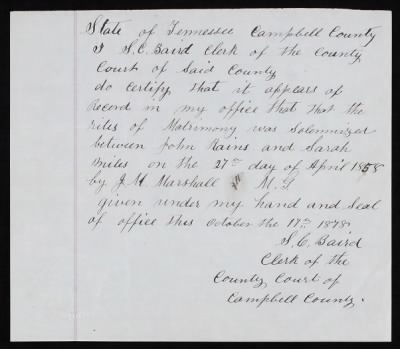 State of Tennessee Campbell County
I S. C. Baird Clerk of the County
Court of Said County
do certify that it appears of
Record in my office that that the
rites of Matrimony was Solemnized
between John Rains and Sarah
Miles on the 27th day of April 1858
by J M Marshall M. G
given under my hand and Seal
of office this October the 17th 1878
S. C. Baird
Clerk of the
County Court of
Campbell County.